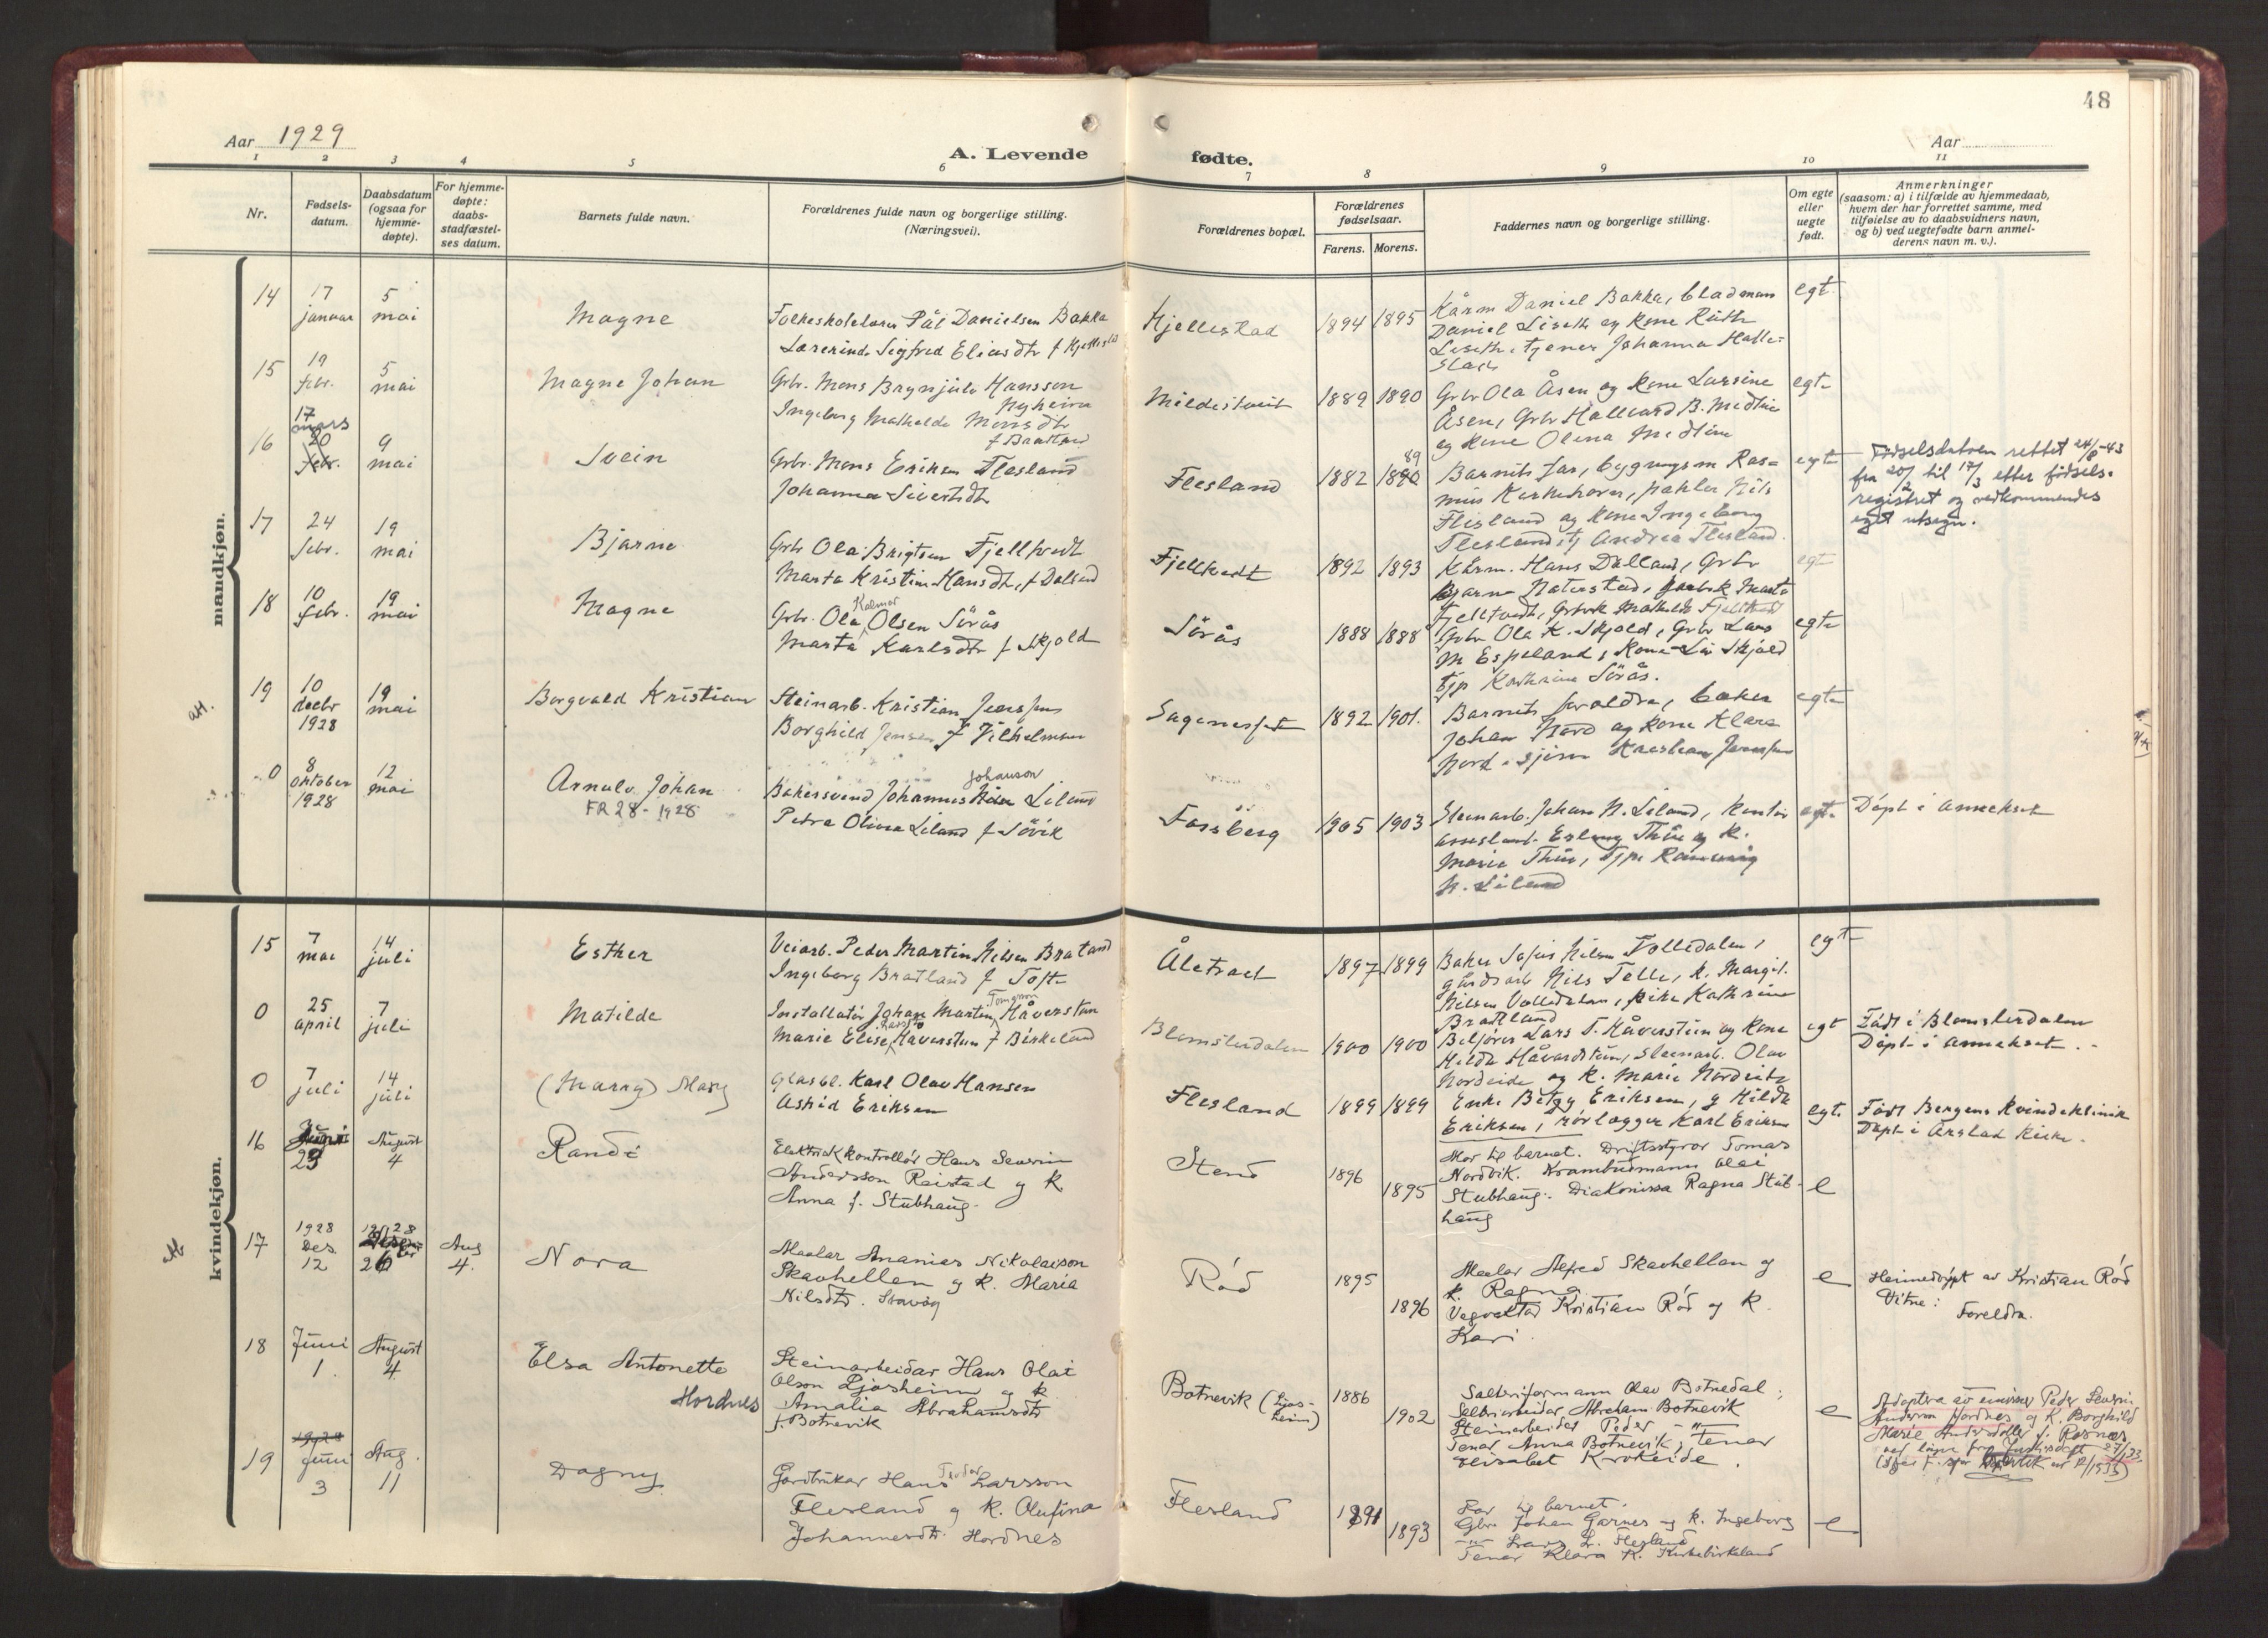 48
Aar 1929
A. Levende fødte.
Aar
1 2 3 4 5 6 7 8 9 10 11
Nr.
Fødsels-
datum.
Daabsdatum
(ogsaa for
hjemme-
døpte).
For hjemme-
døpte:
daabs-
stadfæstel-
ses datum.
Barnets fulde navn.
Forældrenes fulde navn og borgerlige stilling.
(Næringsvei).
Forældrenes bopæl.
Forældrenes
fødselsaar.
Farens. Morens.
Faddernes navn og borgerlige stilling.
Om egte
eller
uegte
født.
Anmerkninger
(saasom: a) i tilfælde av hjemmedaab,
hvem der har forrettet samme, med
tilføielse av to daabsvidners navn,
og b) ved uegtefødte barn anmel-
derens navn m. v.).
mandkjøn.
14
17
januar
5
mai
Magne
Folkeskolelærer Pål Danielsen Bakka
Lærerinde Sigfred Eliasdtr f
Hjellestad
1894 1895
Kårm Daniel Bakka,
Daniel Liseth og kone Ruth
Liseth, tjener Johanna Halle-
egt.
15
19
febr.
5
mai
Magne Johan
Grbr. Mons Brynjulv Hansson
Nyheim
Ingeborg Mathilde Monsdtr
f Bratland
Mildestveit
1889 1890
Grbr Ola Åsen og kone Larsine
Åsen, Grbr Hallvard B. Midtun
og kone Olina Midtun
egt.
16
17
mars
20
febr.
9
mai
Svein
Grbr. Mons Eriksen Flesland
Johanna Sivertsdtr
Flesland
1882 1890
89
Barnets far, bygningsm Ras-
mus Kirkehover, maler Nils
Flesland og kone Ingeborg
Flesland, tj Andrea Flesland.
egt
Fødselsdatoen rettet 24/8-43
fra 20/2 til 17/3 etter fødsels-
registret og vedkommendes
eget utsagn.
17
24
febr.
19
mai
Bjarne
Grbr Ola Brigtsen Fjelltvedt
Marta Kristine Hansdtr, f Dalland
Fjelltvedt
1892 1893
Kårm. Hans Dalland, Grbr
Bjarne Naterstad, Marta
Fjelltvedt, Mathilde Fjelltvedt
egt
18
10
febr.
19
mai
Magne
Grbr. Ola Kalmar Olsen Sörås
Marta Karlsdtr f Skjold
Sörås
1888 1888
Grbr Ola K. Skjold, Grbr Lars
M Espeland, kone Liv Skjold
Tjp Kathrine Sörås.
egt
19
10
decbr
1928
19
mai
Borgvald Kristian
Steinarb. Kristian Jenssen
Borghild Jensen f Vilhelmsen
Sagenesset
1892 1901.
Barnets foreldre, baker
Johan Nord og kone Klara
Nord, gjörm Kristian Jenssen
egt
0
8
oktober
1928
12
mai
Arnulv Johan
FR 28 - 1928
Bakersvend Johannes Johanson Liland
Petra Olina Liland f Sövik
Fossberg
1905 1903
Steinarb. Johan N. Liland, kontor
assistent Erling Thue og k.
Marie Thue, Tjp
N. Liland
egt.
Döpt i annekset
kvindekjøn.
15
7
mai
14
juli
Esther
Veiarb. Peder Martin Nilsen Bratland
Ingeborg Bratland f Toft
Åletræet
1897 1899
Baker Sofus Nilsen Tolledalen,
gårdsarb Nils Telle, k. Margit
Nilsen Volledalen, pike Kathrine
Bratland
egt
0
25
april
7
juli
Matilde
Installatör Johan Martin Tomasson Håverstun
Marie Elise Larsdtr Håverstun f Birkeland
Blomsterdalen
1900 1900
Biljörer Lars T. Håverstein og kone
Hilda Håvardstun, Steenarb. Olav
Nordeide og k. Marie Nordeide
egt
Födt i Blomsterdalen
Döpt i annekset.
0
7
juli
14
juli
(Marry) Mary
Glasbl. Karl Olav Hansen
Astrid Eriksen
Flesland
1899 1899
Enke Betzy Eriksen, g Hilda
Eriksen, rörlægger Karl Eriksen
egt.
Födt Bergens Kvindeklinik
Döpt i Årstad kirke.
16
23
August
4
Randi
Elektrisk kontrollör Hans Severin
Anderssen Raistad og k.
Anna f. Stubhaug.
Stend
1896
1895
Mor til barnet. Driftsstyrer Tomas
Nordvik. Krambudmann Olai
Stubhaug. Diakonissa Ragna Stub-
haug
e
17
1928
Des
12
1928
26
Aug
4.
Nora
Maalar Ananias Nikolaison
Skavhellen og k. Maria
Nilsdtr. Storvög
Röd
1895
1896
Maalar Alfred Skavhellen og
k. Ragna
Vegvaktar Kristian Röd og k.
Kari.
e
Heimedöypt av Kristian Röd
Vitne:
Foreldra.
18
Juni
1
August
4
Elsa Antonette
Hordnes
Steinarbeidar Hans Olai
Olson Ljosheim og k
Amalia Abrahamsdtr
f. Botnevik
Botnevik (Ljos-
heim)
1886
1902
Salteriformann Olav Botnedal;
Salteriarbeidar Abraham Botnevik
Steinarbeidar Peder -"-
Tenar Anna Botnevik; Tenar
Elisabet Krokeide.
e
Adoptera av Peder Severin
Anderson Hordnes og k. Borghild
Marie Andersdotter f. Rosnes
19
1928
Juni
3
Aug.
11
Dagny
Gardbrukar Hans Teodor Larsson
Flesland og k. Olufina
Johannesdtr. Hordnes
Flesland
1891
1893
Far til barnet.
Gbr. Johan Garnes og k. Ingeborg
-"- Lars L. Flesland
Tenar Klara K. Kirkebirkeland
e